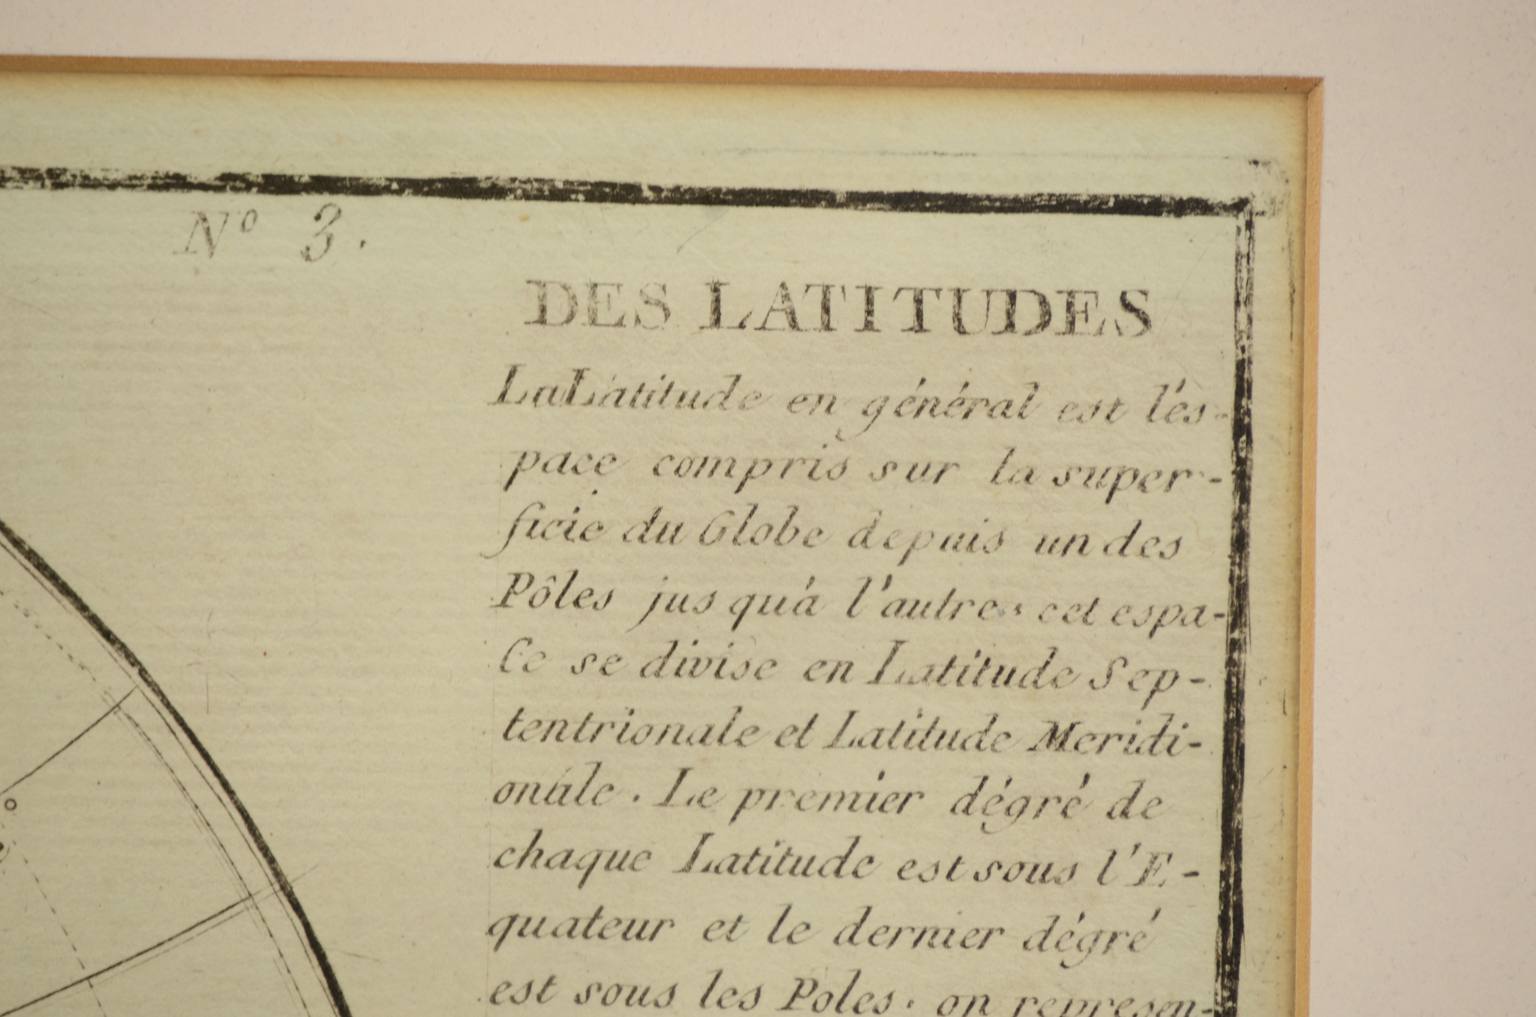 Nº 3.
DES LATITUDES
La Latitude en général est l'és-
pace compris sur la super-
ficie du Globe depuis un des
Pôles jus qu'à l'autre. cet espa-
ce se divise en Latitude Sep-
tentrionale et Latitude Meridi-
onale. Le premier dégré de
chaque Latitude est sous l'E-
quateur et le dernier dégré
est sous les Poles. on represen-